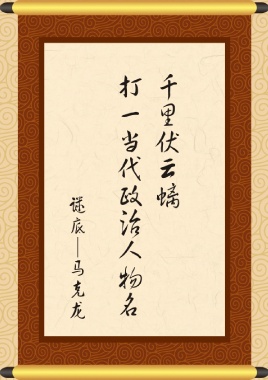 千里伏云螭
打一当代政治人物名
谜底——马克龙